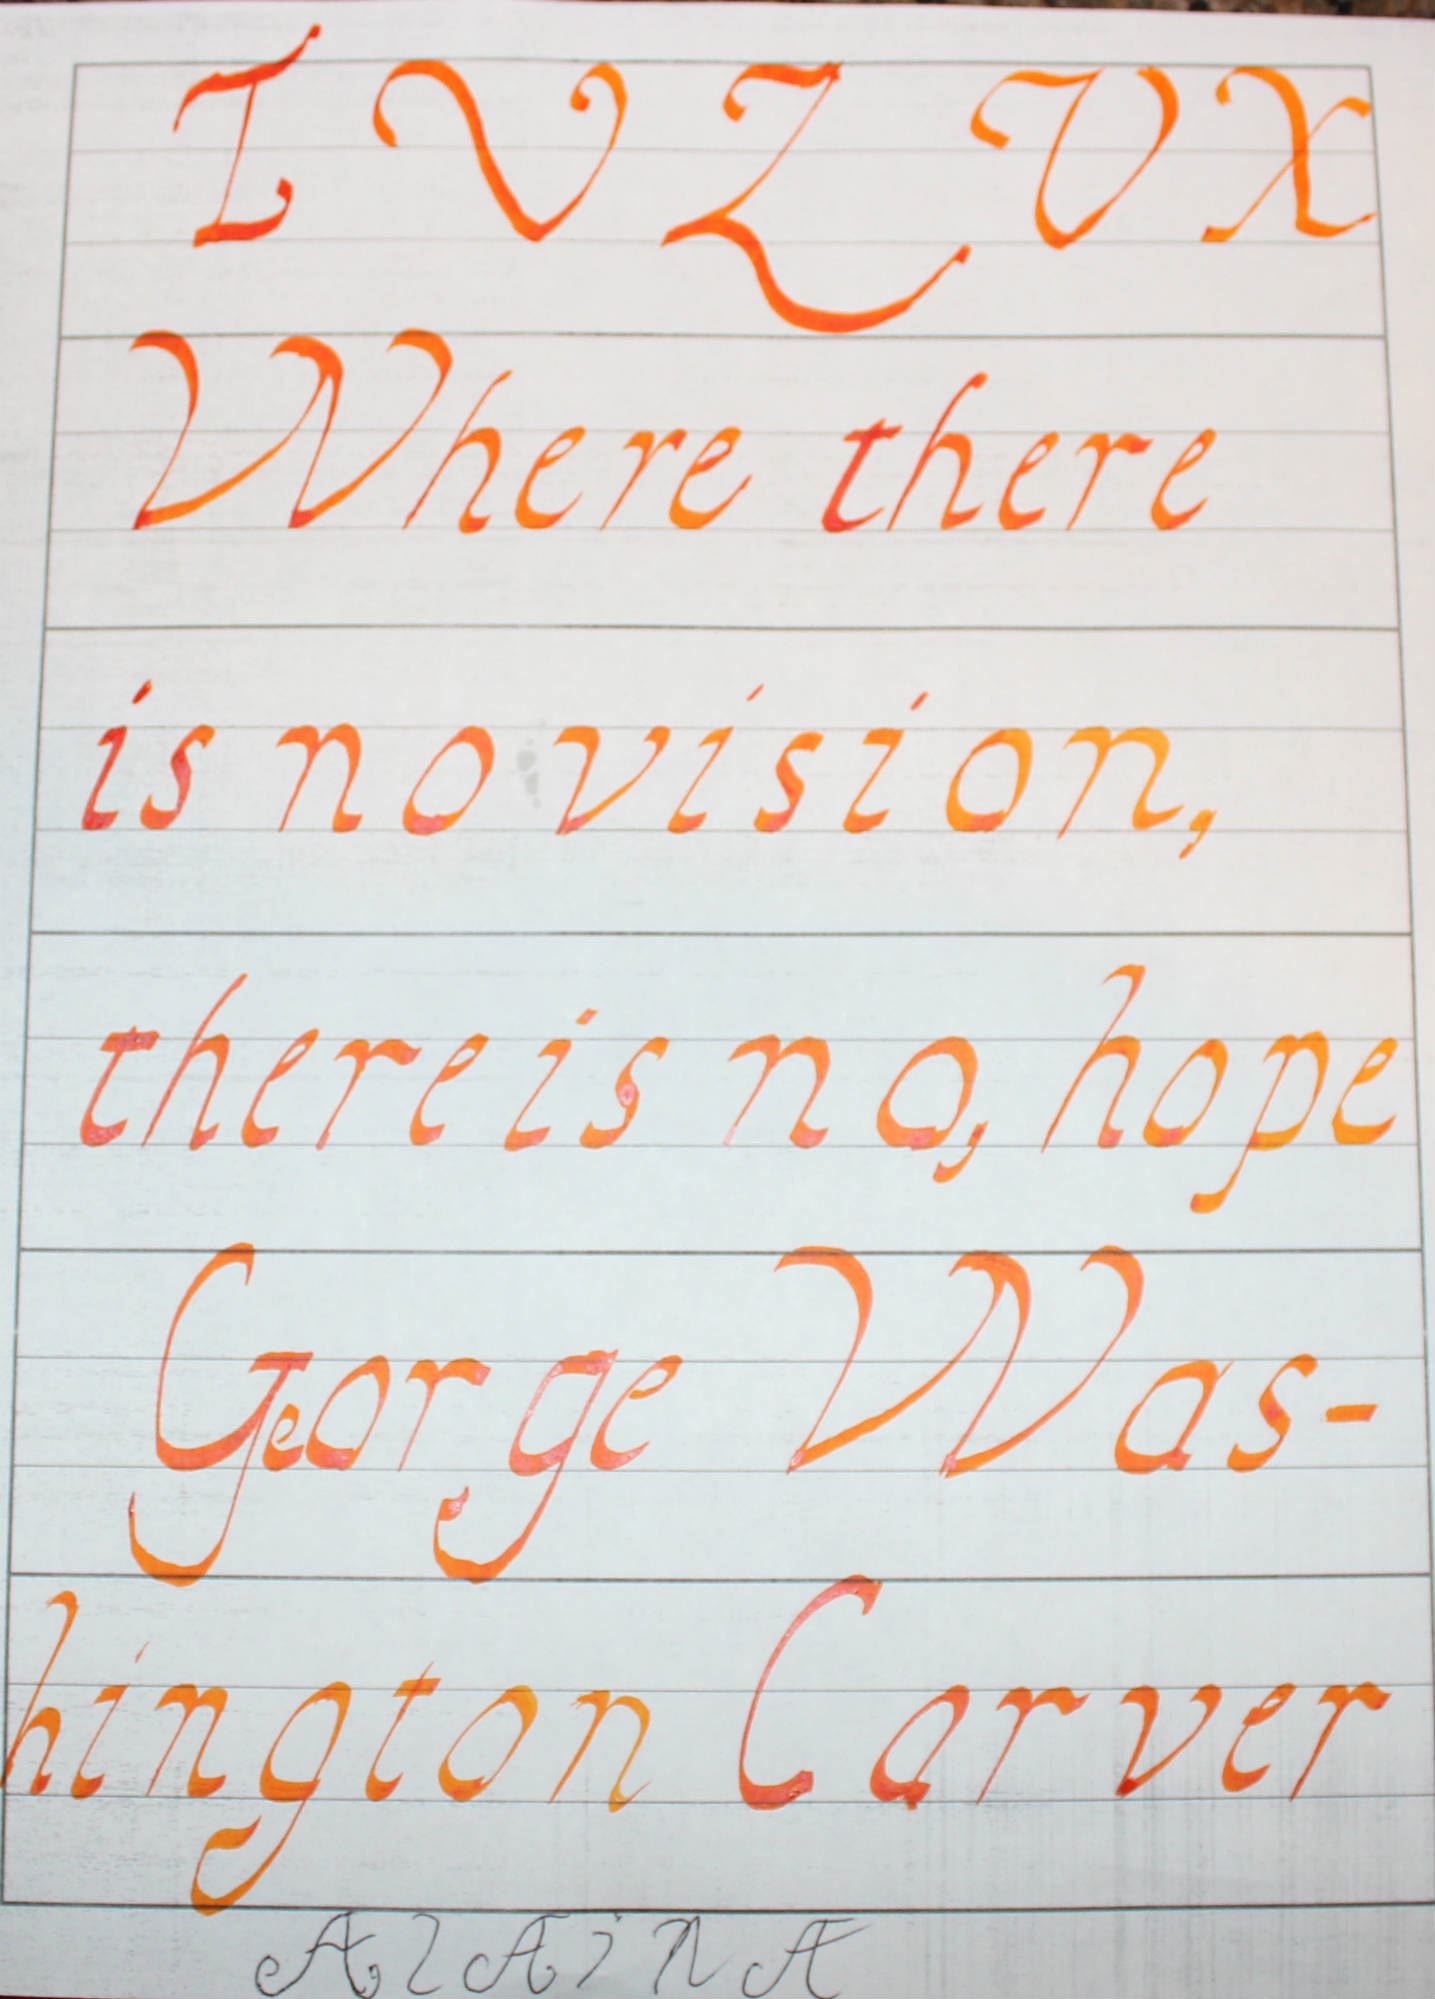 I V Z V X
Where there
is no vision,
there is no, hope
George Was-
hington Carver
AlAiNA